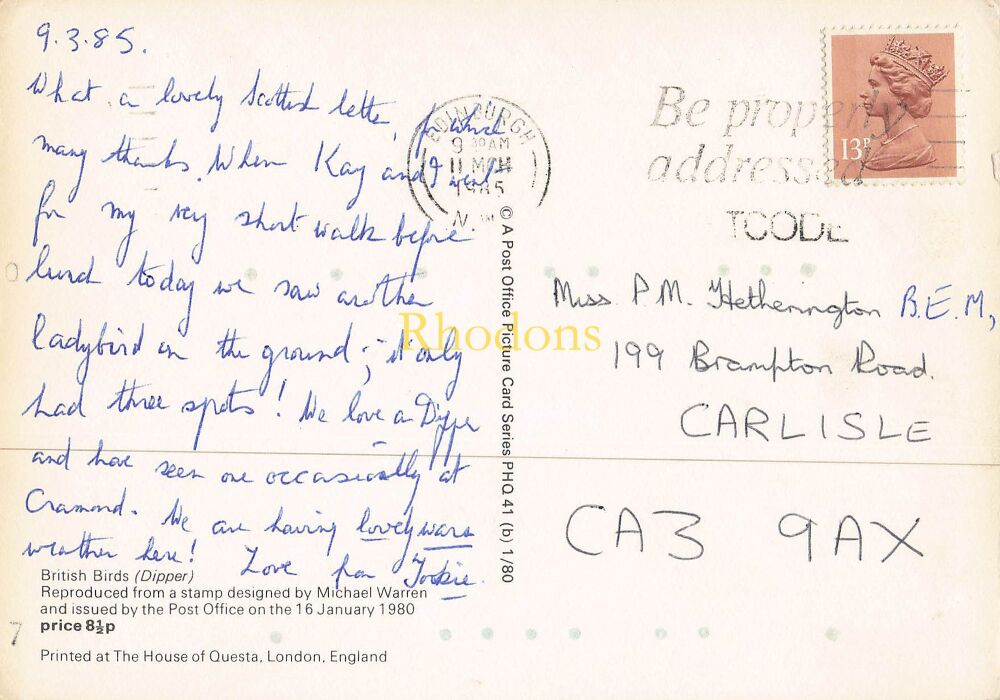 9.3.85.
What a lovely Scottish letter, for which
many thanks. When Kay and I went
for my very short walk before
lunch today we saw another
ladybird on the ground; it only
had three spots! We love a Dipper
and have seen one occasionally at
Cramond. We are having lovely warm
weather here! Love from
British Birds (Dipper)
Reproduced from a stamp designed by Michael Warren
and issued by the Post Office on the 16 January 1980
price 8½p
Printed at The House of Questa, London, England
© A Post Office Picture Card Series PHQ 41 (b) 1/80
EDINBURGH
9 30 AM
11 MCH
1985
Be properly
addressed
13P
Miss P.M. Hetherington B.E.M.,
199 Brampton Road.
CARLISLE
CA3 9AX
Rhodons